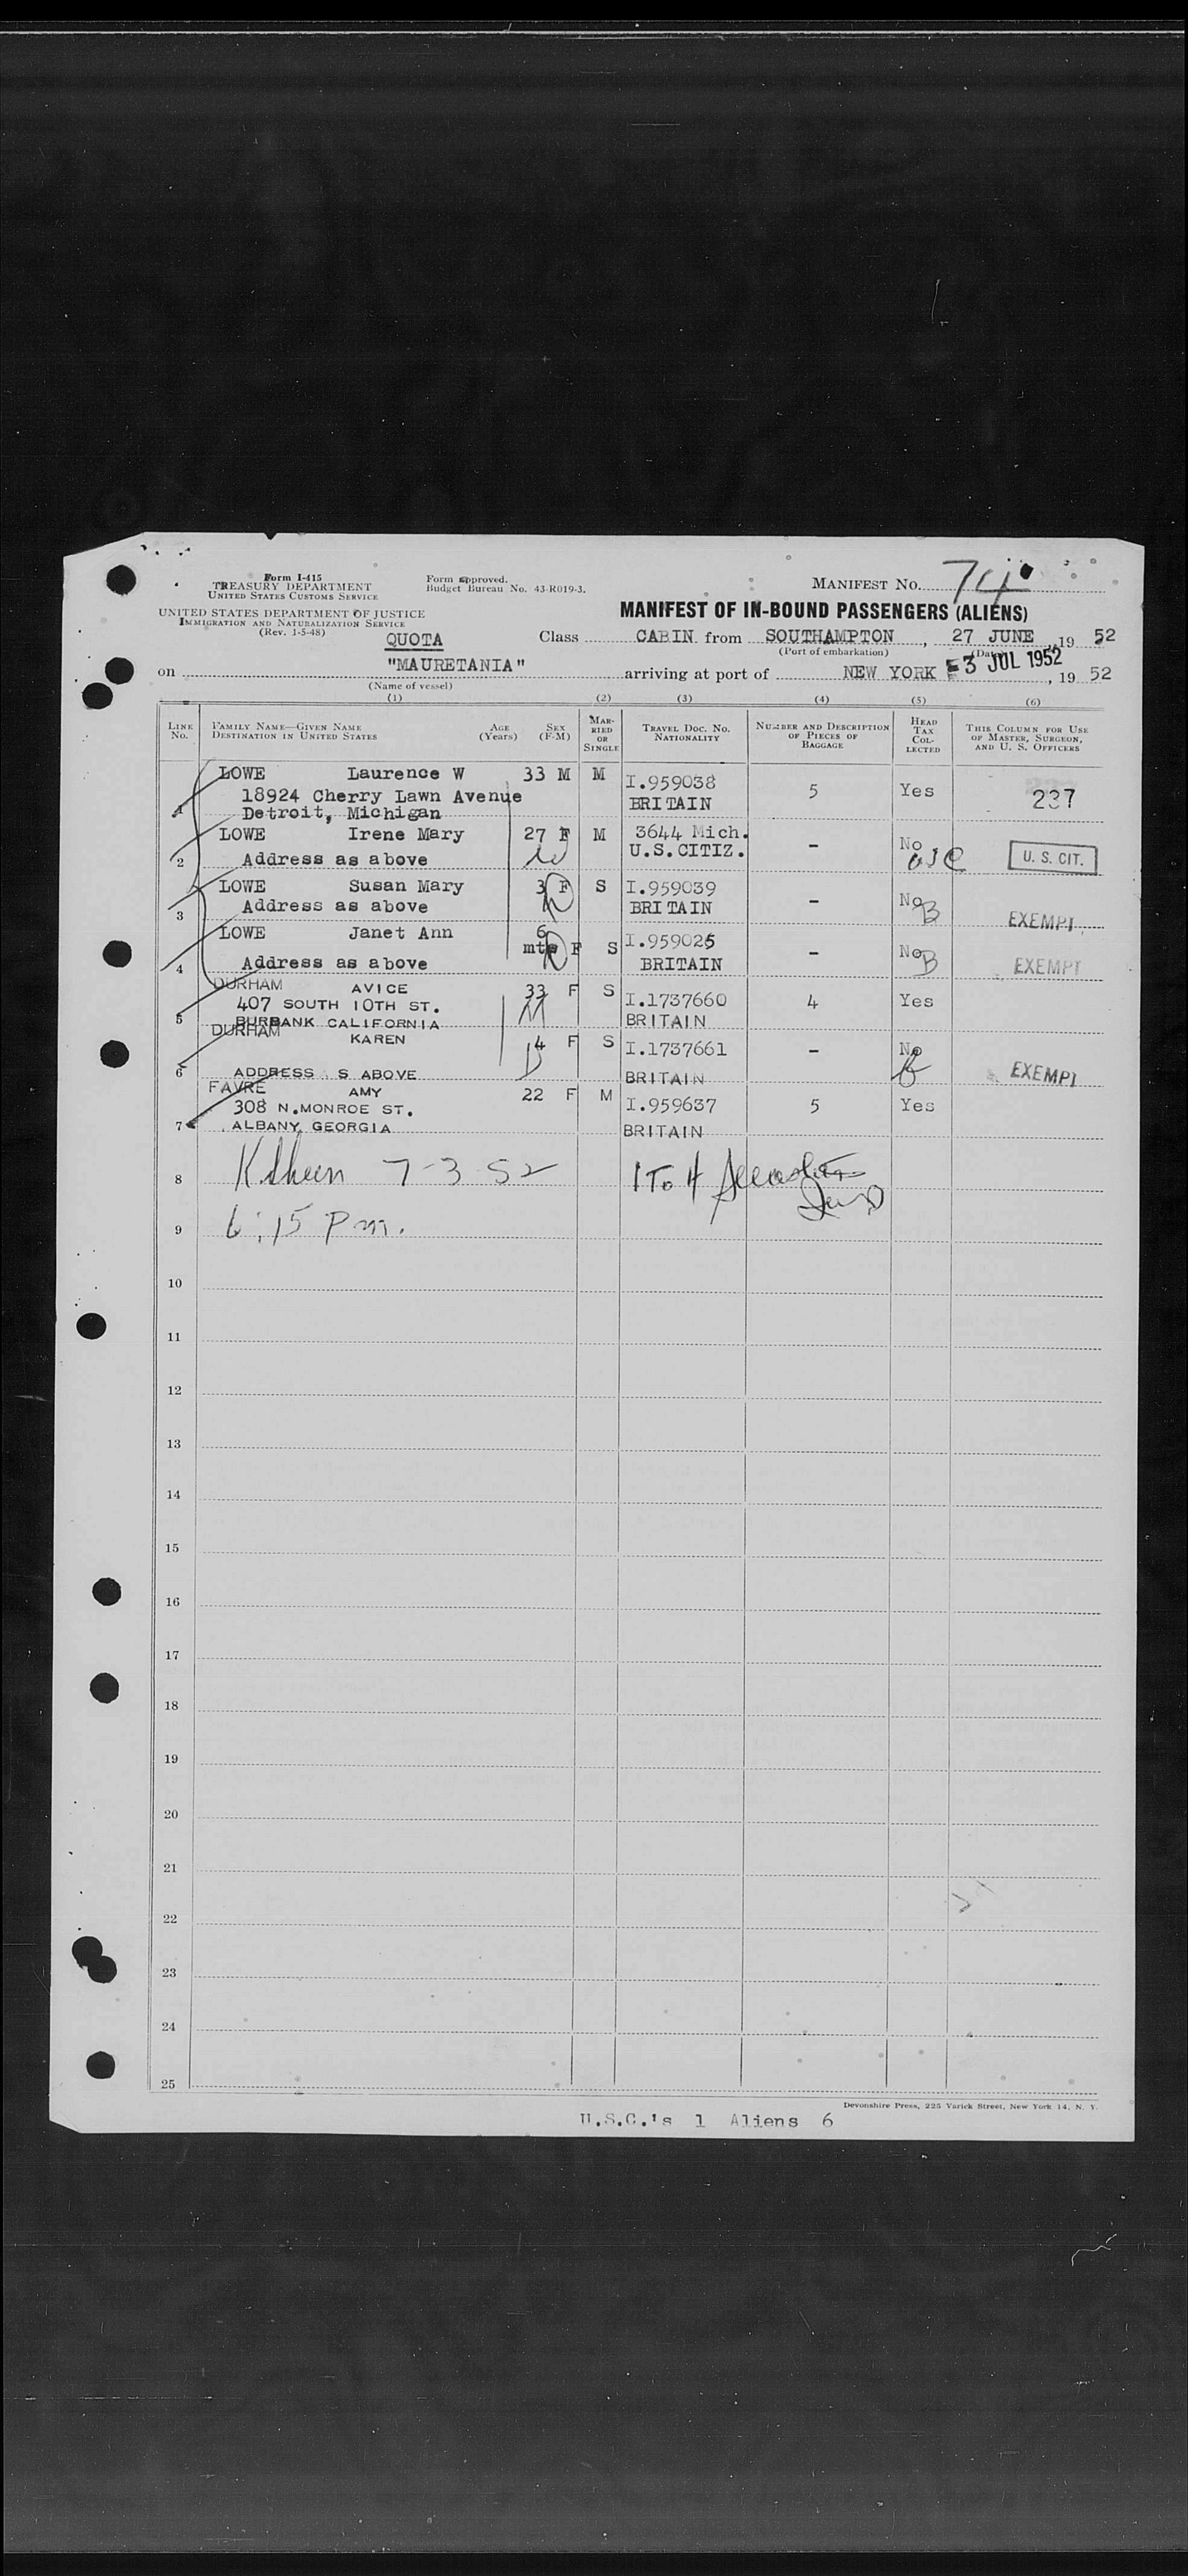 Form I-415
TREASURY DEPARTMENT
UNITED STATES CUSTOMS SERVICE
UNITED STATES DEPARTMENT OF JUSTICE
IMMIGRATION AND NATURALIZATION SERVICE
(Rev. 1-5-48)
Form approved.
Budget Bureau No. 43-R019-3.
MANIFEST No. 74
MANIFEST OF IN-BOUND PASSENGERS (ALIENS)
QUOTA Class CABIN from SOUTHAMPTON, 27 JUNE, 19 52
(Port of embarkation) (Date)
on "MAURETANIA" arriving at port of NEW YORK 3 JUL 1952, 19 52
(Name of vessel)
(1) (2) (3) (4) (5) (6)
LINE No. FAMILY NAME—GIVEN NAME DESTINATION IN UNITED STATES AGE (Years) SEX (F-M) MARRIED OR SINGLE TRAVEL DOC. NO. NATIONALITY NUMBER AND DESCRIPTION OF PIECES OF BAGGAGE HEAD TAX COLLECTED THIS COLUMN FOR USE OF MASTER, SURGEON, AND U. S. OFFICERS
LOWE Laurence W 33 M M I.959038 5 Yes 237
18924 Cherry Lawn Avenue BRITAIN
1 Detroit, Michigan
LOWE Irene Mary 27 F M 3644 Mich. - No USC U. S. CIT.
2 Address as above U.S.CITIZ.
LOWE Susan Mary 3 F S I.959039 - No B EXEMPT
3 Address as above BRITAIN
LOWE Janet Ann 6 mts F S I.959025 - No B EXEMPT
4 Address as above BRITAIN
DURHAM AVICE 33 F S I.1737660 4 Yes
407 SOUTH 10TH ST. M
5 BURBANK CALIFORNIA BRITAIN
DURHAM KAREN 14 F S I.1737661 - No EXEMPT
6 ADDRESS S ABOVE BRITAIN
FAVRE AMY 22 F M I.959637 5 Yes
308 N.MONROE ST.
7 ALBANY, GEORGIA BRITAIN
8 7-3-52 1 To 4
9 6:15 Pm.
10
11
12
13
14
15
16
17
18
19
20
21
22
23
24
25
Devonshire Press, 225 Varick Street, New York 14, N. Y.
U.S.C.'s 1 Aliens 6